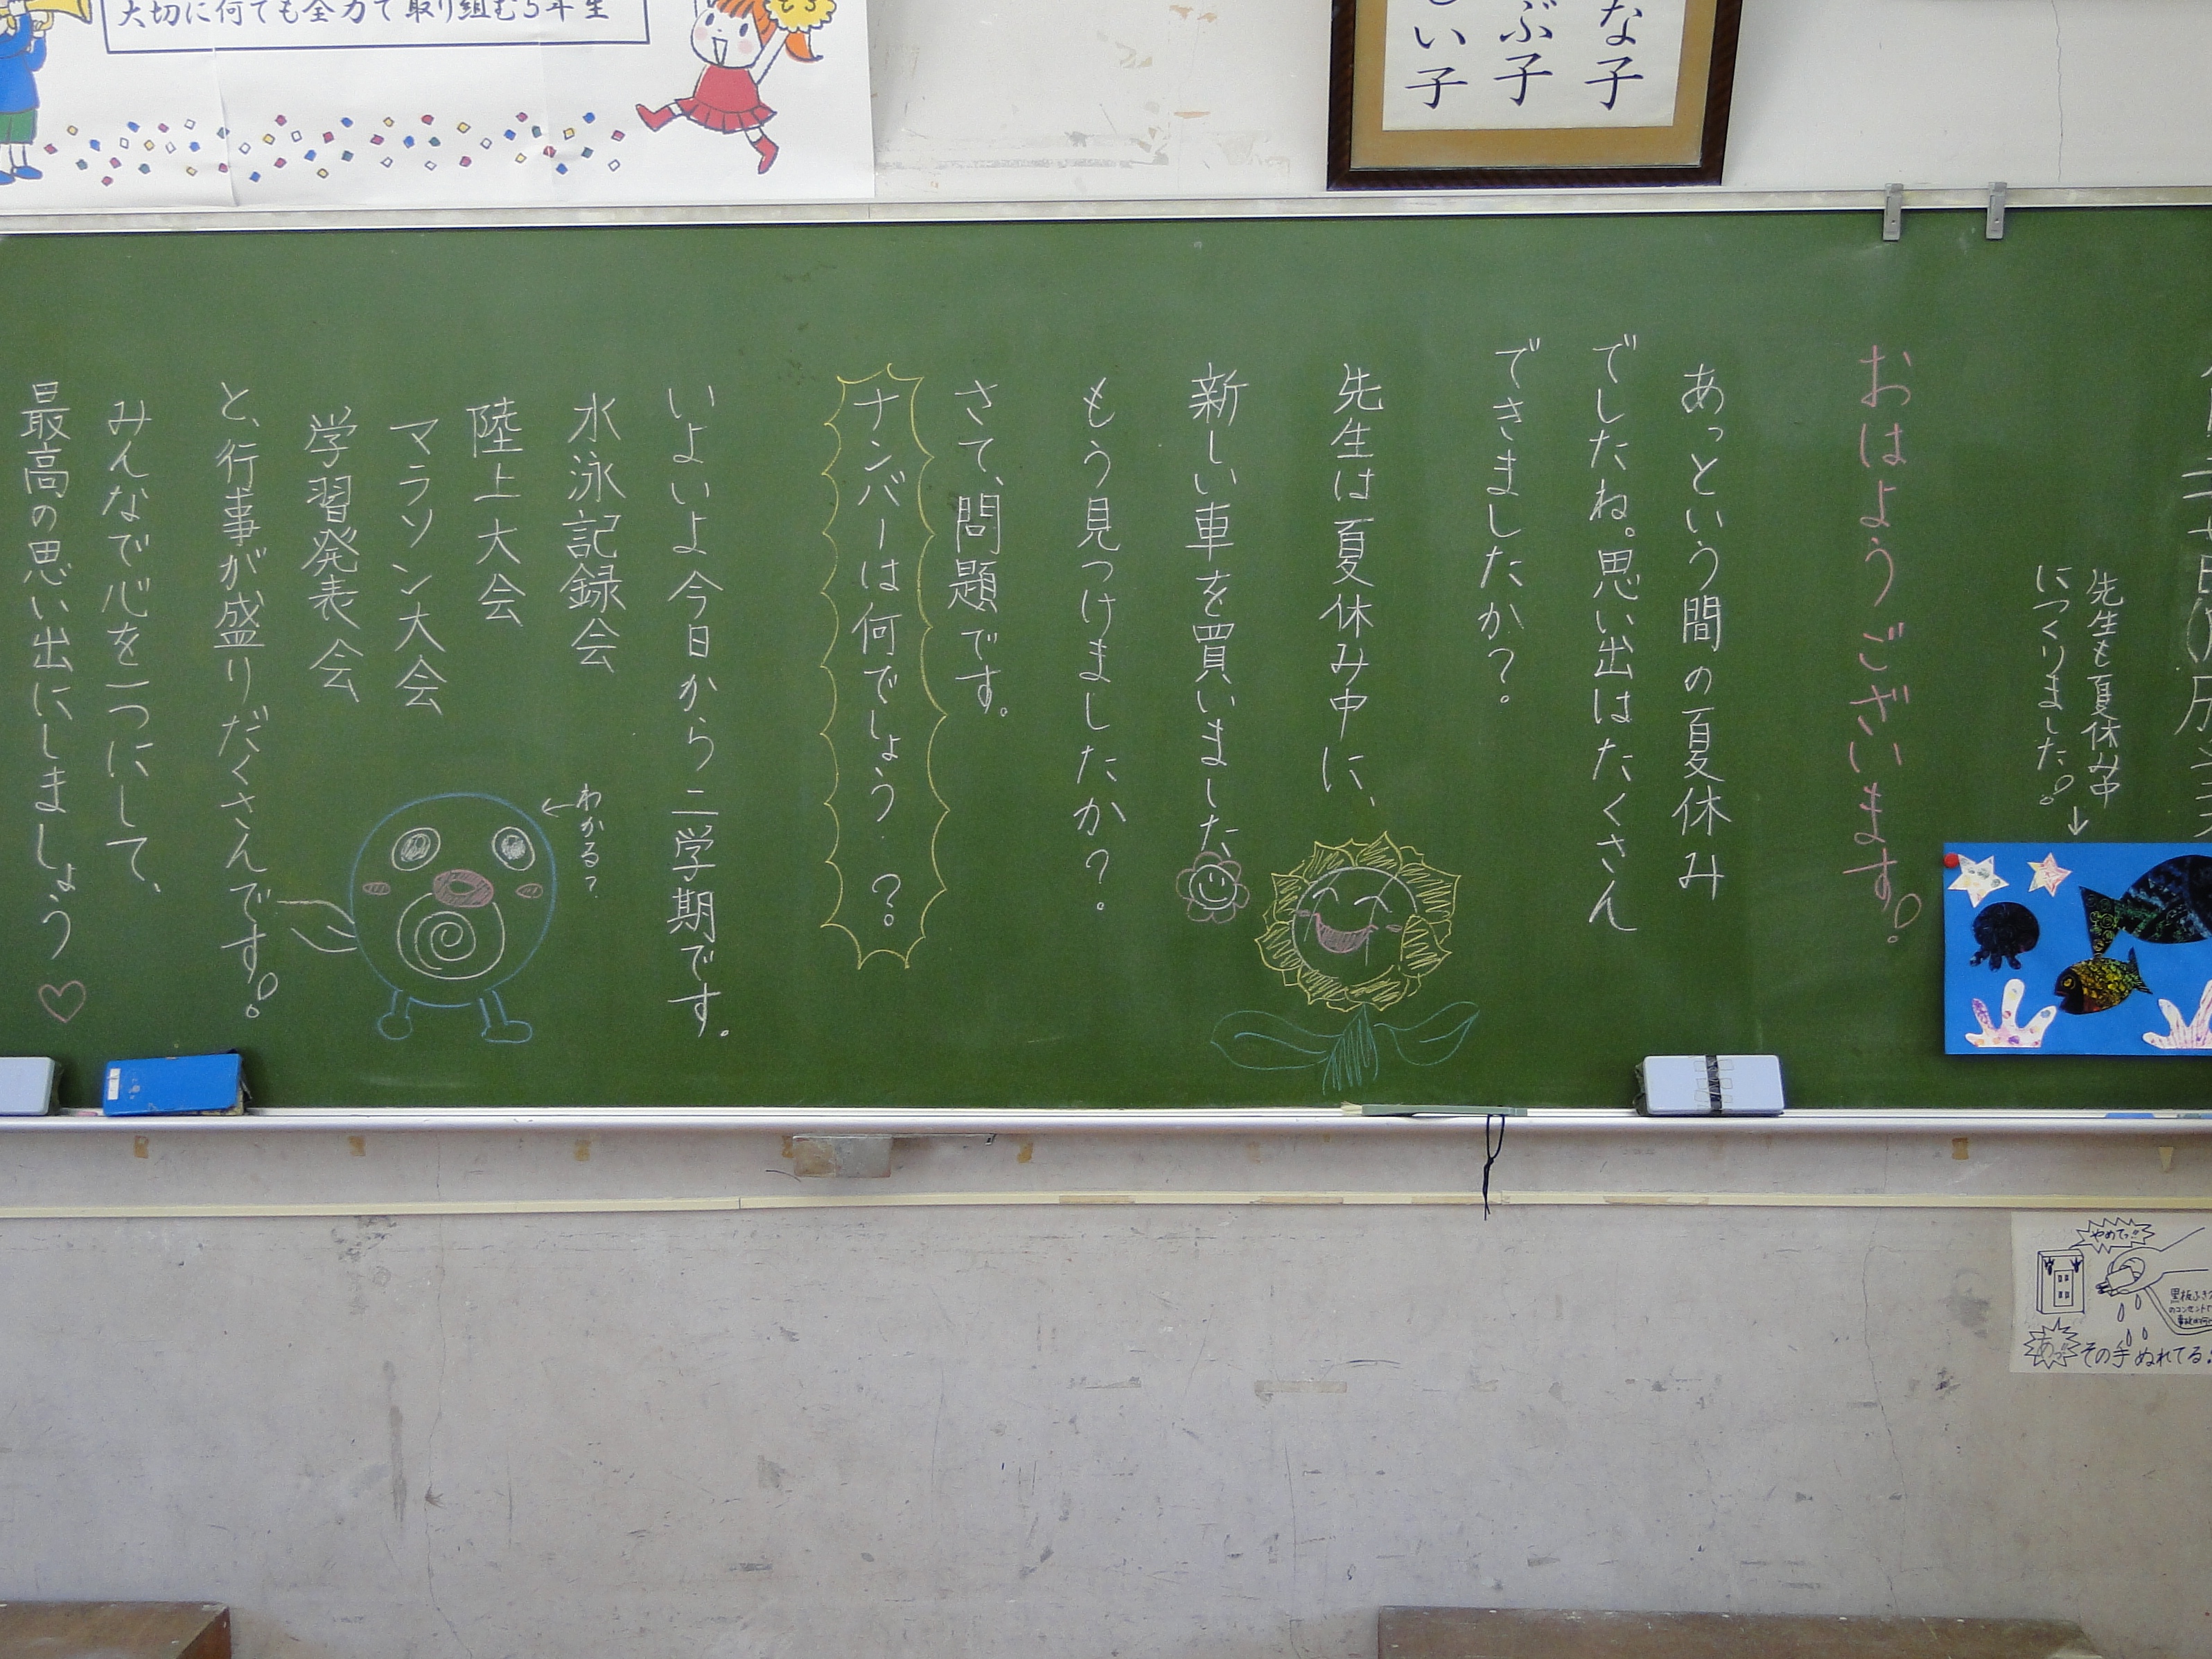 大切に何でも全力で取り組む5年生
な子
ぶ子
い子
先生も夏休み中
につくりました!
おはようございます!
あっという間の夏休み
でしたね。思い出はたくさん
できましたか?
先生は夏休み中に、
新しい車を買いました
もう見つけましたか?
さて、問題です。
ナンバーは何でしょう?
いよいよ今日から二学期です。
水泳記録会
陸上大会
マラソン大会
学習発表会
わかる?
と、行事が盛りだくさんです!
みんなで心を一つにして、
最高の思い出にしましょう♡
やめてっ!!
その手ぬれてる